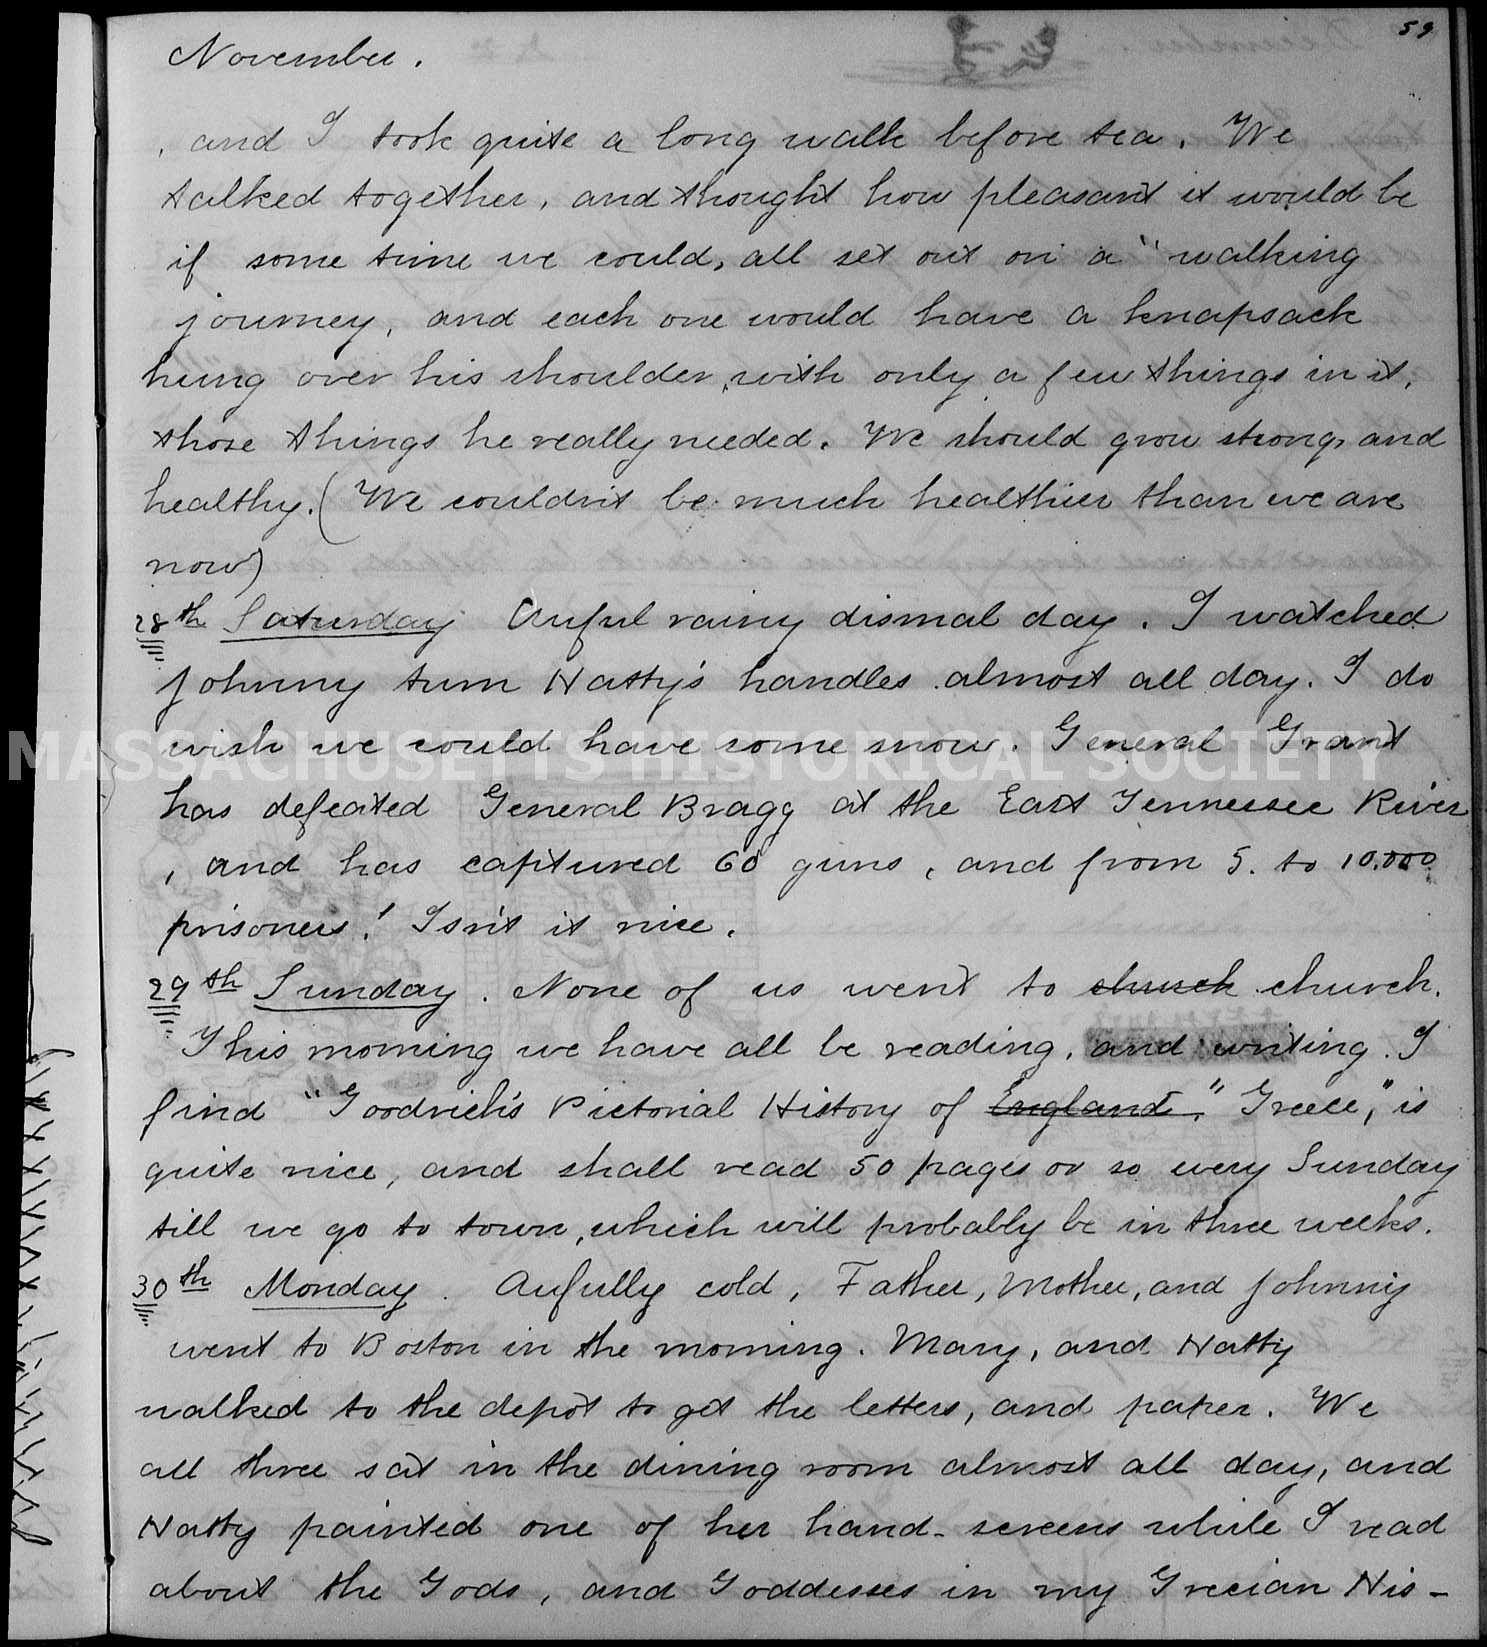 59
November.
, and I took quite a long walk before tea. We
talked together, and thought how pleasant it would be
if some time we could, all set out on a "walking
journey, and each one would have a knapsack
hung over his shoulder, with only a few things in it,
those things he really needed. We should grow strong, and
healthy. (We couldn't be much healthier than we are
now)
28th Saturday Awful rainy dismal day. I watched
Johnny turn Hatty's handles almost all day. I do
wish we could have some snow. General Grant
MASSACHUSETTS HISTORICAL SOCIETY
has defeated General Bragg at the East Tennessee River
, and has captured 60 guns, and from 5. to 10.000
prisoners! Isn't it nice.
29th Sunday. None of us went to church church.
This morning we have all be reading, and writing. I
find "Goodrich's Pictorial History of England." Greece," is
quite nice, and shall read 50 pages or so every Sunday
till we go to town, which will probably be in three weeks.
30th Monday. Awfully cold, Father, Mother, and Johnny
went to Boston in the morning. Mary, and Hatty
walked to the depot to get the letters, and paper. We
all three sat in the dining room almost all day, and
Hatty painted one of her hand-screens while I read
about the Gods, and Goddesses in my Grecian His-